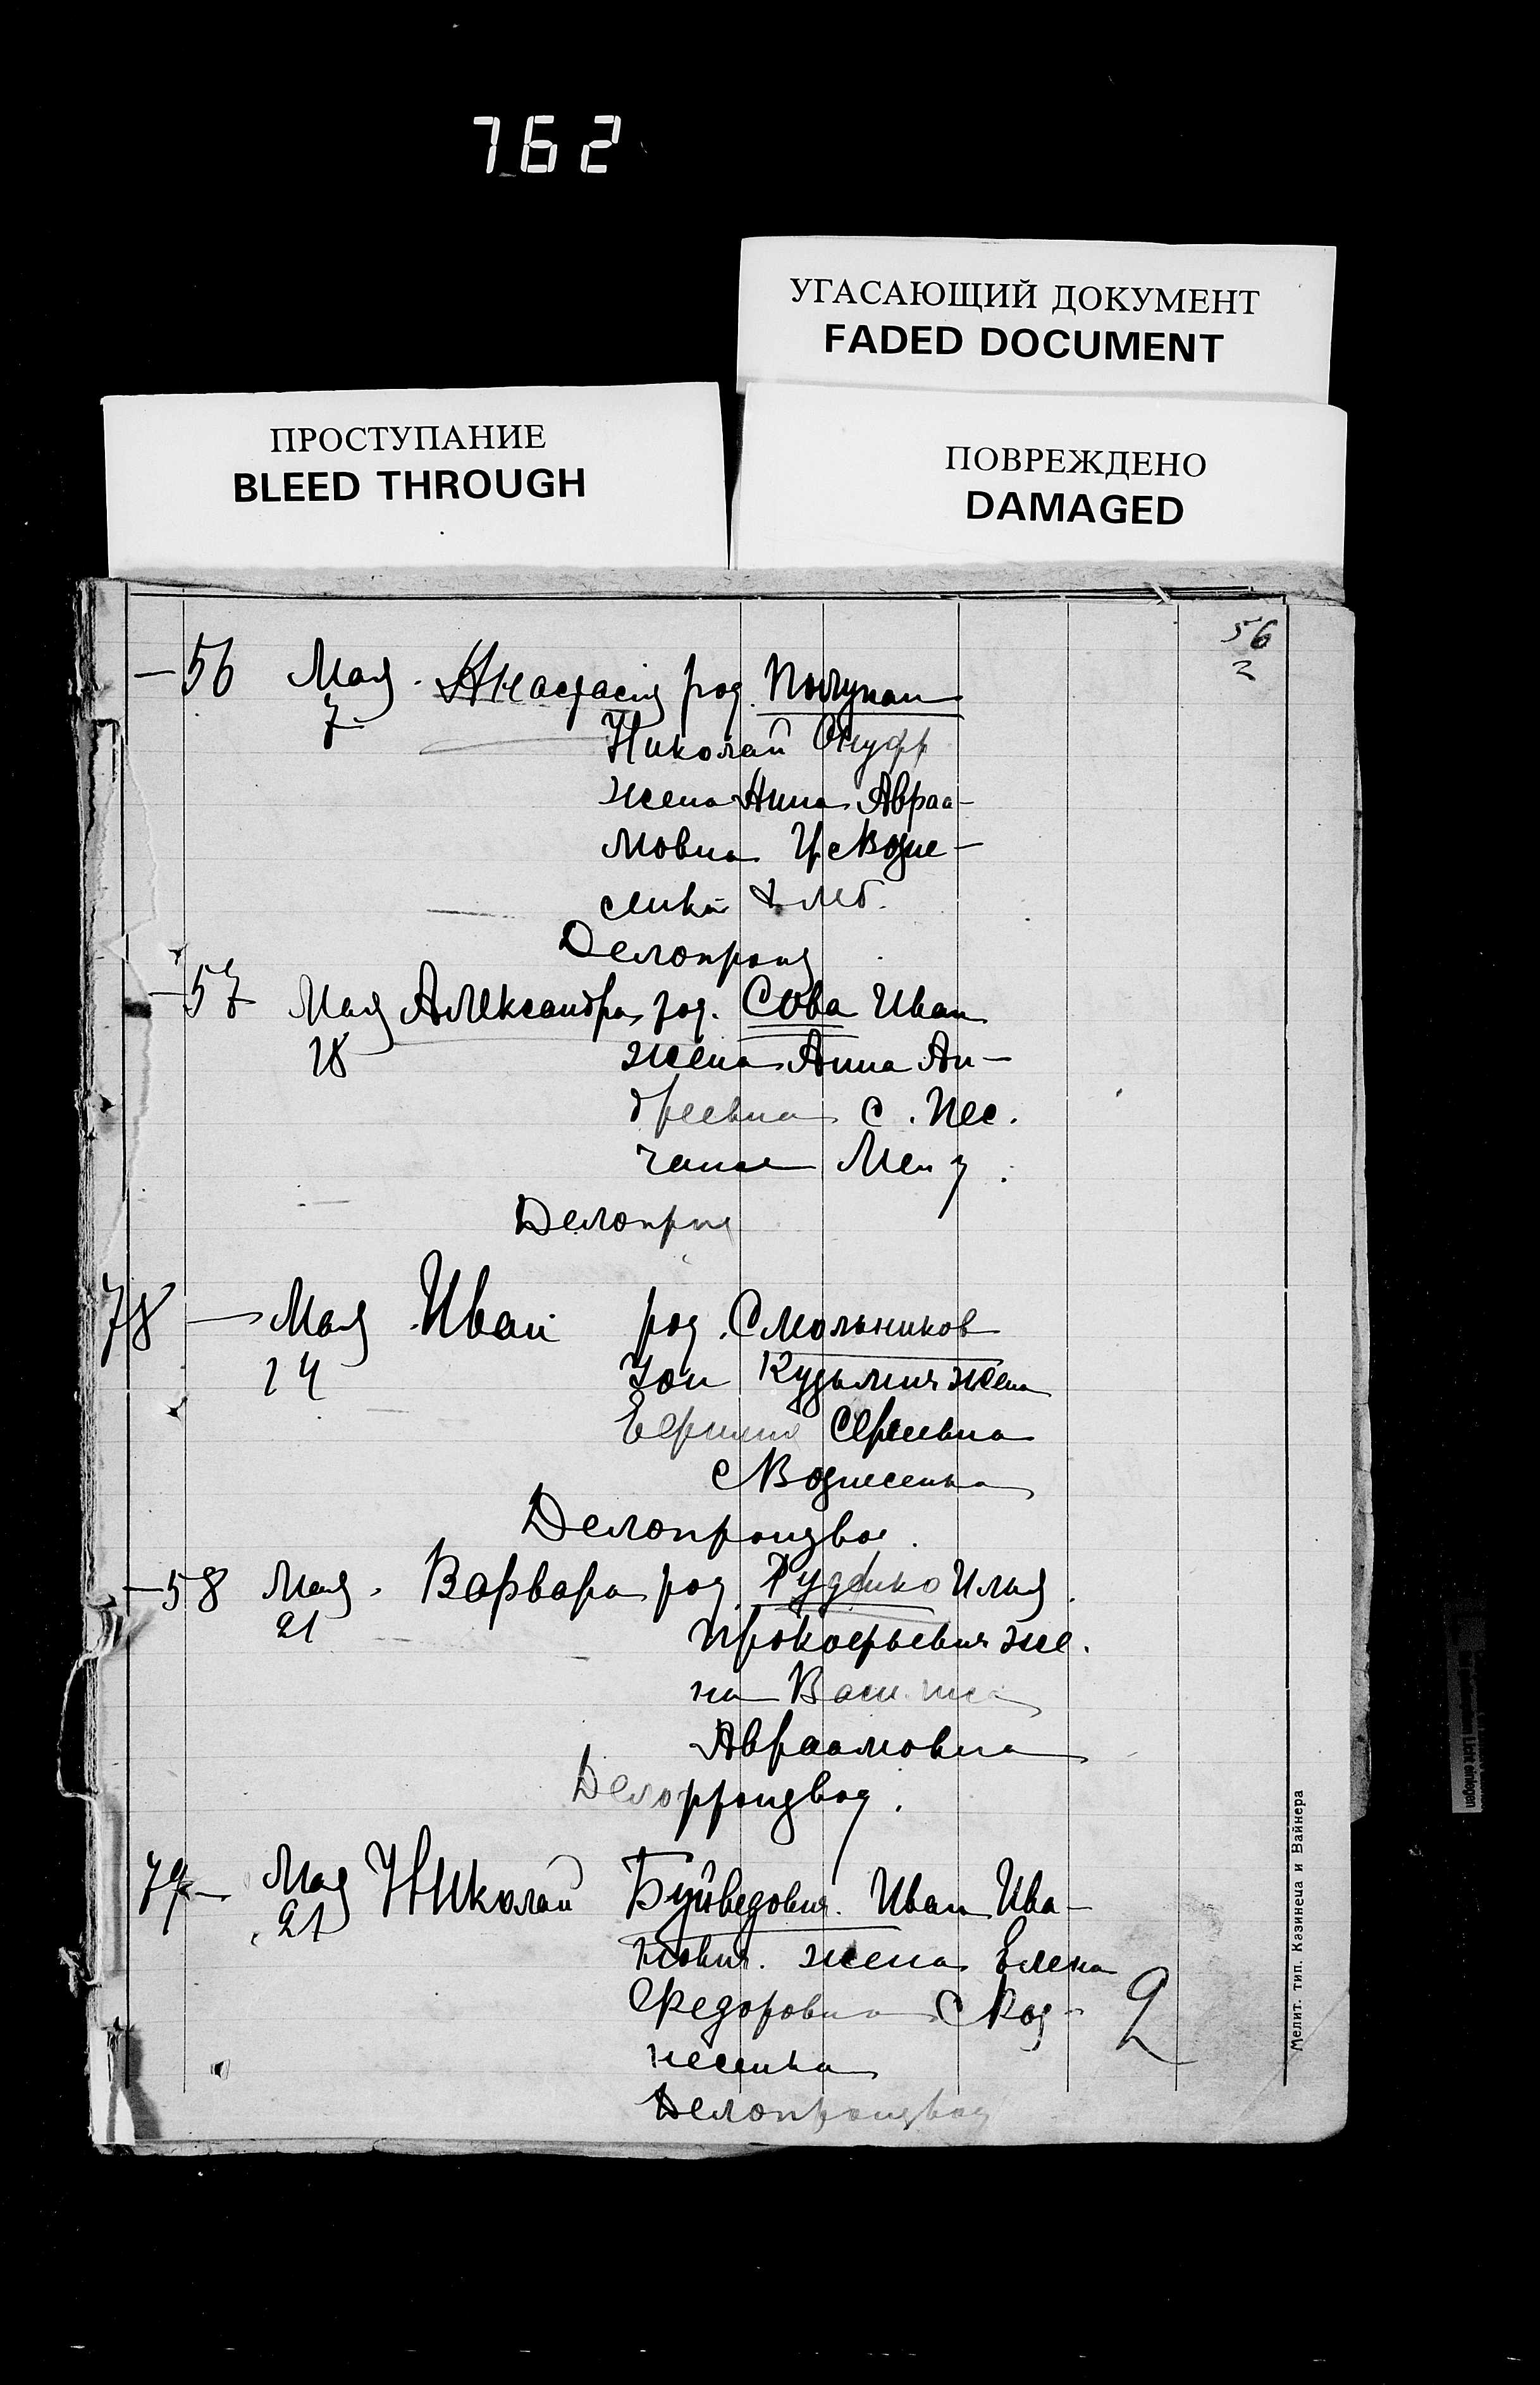 762
УГАСАЮЩИЙ ДОКУМЕНТ
FADED DOCUMENT
ПРОСТУПАНИЕ
BLEED THROUGH
ПОВРЕЖДЕНО
DAMAGED
56
2
— 56 Мая Анастасия род.
7 Николай Онуфр
жена Анна Авраа-
мовна
Делопроиз
— 57 Мая Александра род. Сова Иван
18 жена Анна Ан-
дреевна с. Пес.
чаное
Делопроиз
78 — Мая Иван род. Смольников
14 Кузьмич жена
Сергеевна
с Вознесенка
Делопроизво.
— 58 Мая Варвара род. Руденко Илья
21 Прокофьевич же.
на
Авраамовна
Делопроизвод.
79 — Мая Николай Буйведович. Иван Ива-
21 нович. жена Елена
Федоровна с Воз-
несенка
Делопроизвод
2
Мелит. тип. Казинеца и Вайнера